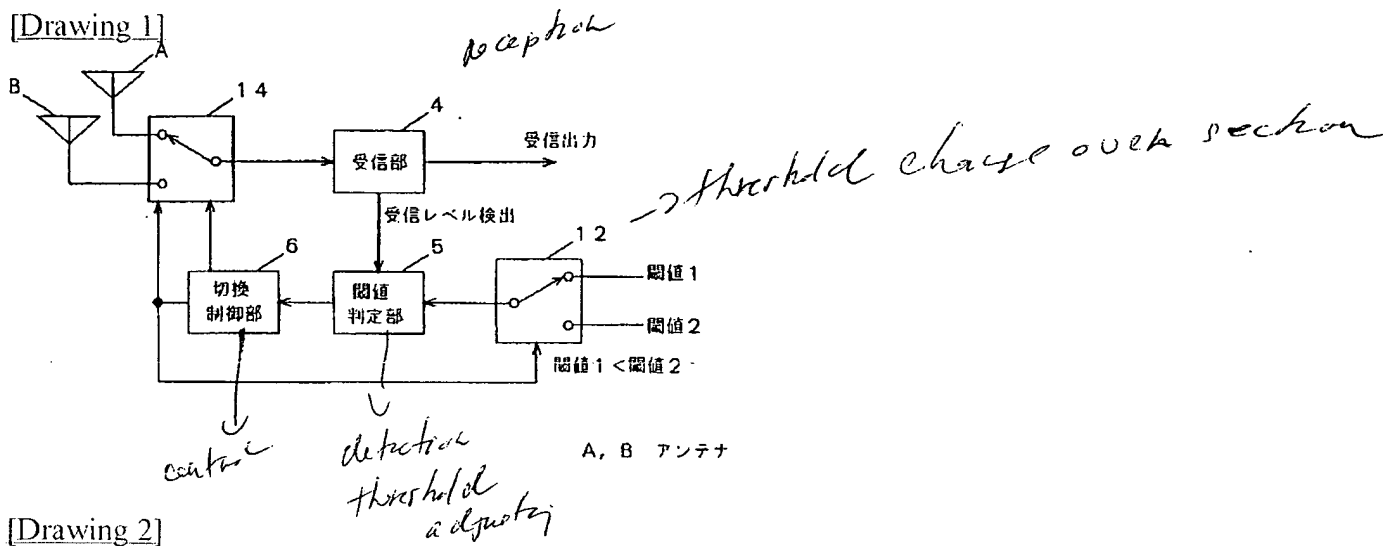 [Drawing 1]
reception
A
B
14
4
受信部
受信出力
受信レベル検出
→threshold change over section
12
6
5
切換
制御部
閾値
判定部
閾値1
閾値2
閾値1<閾値2
control
detection
threshold
adjusting
A, B アンテナ
[Drawing 2]